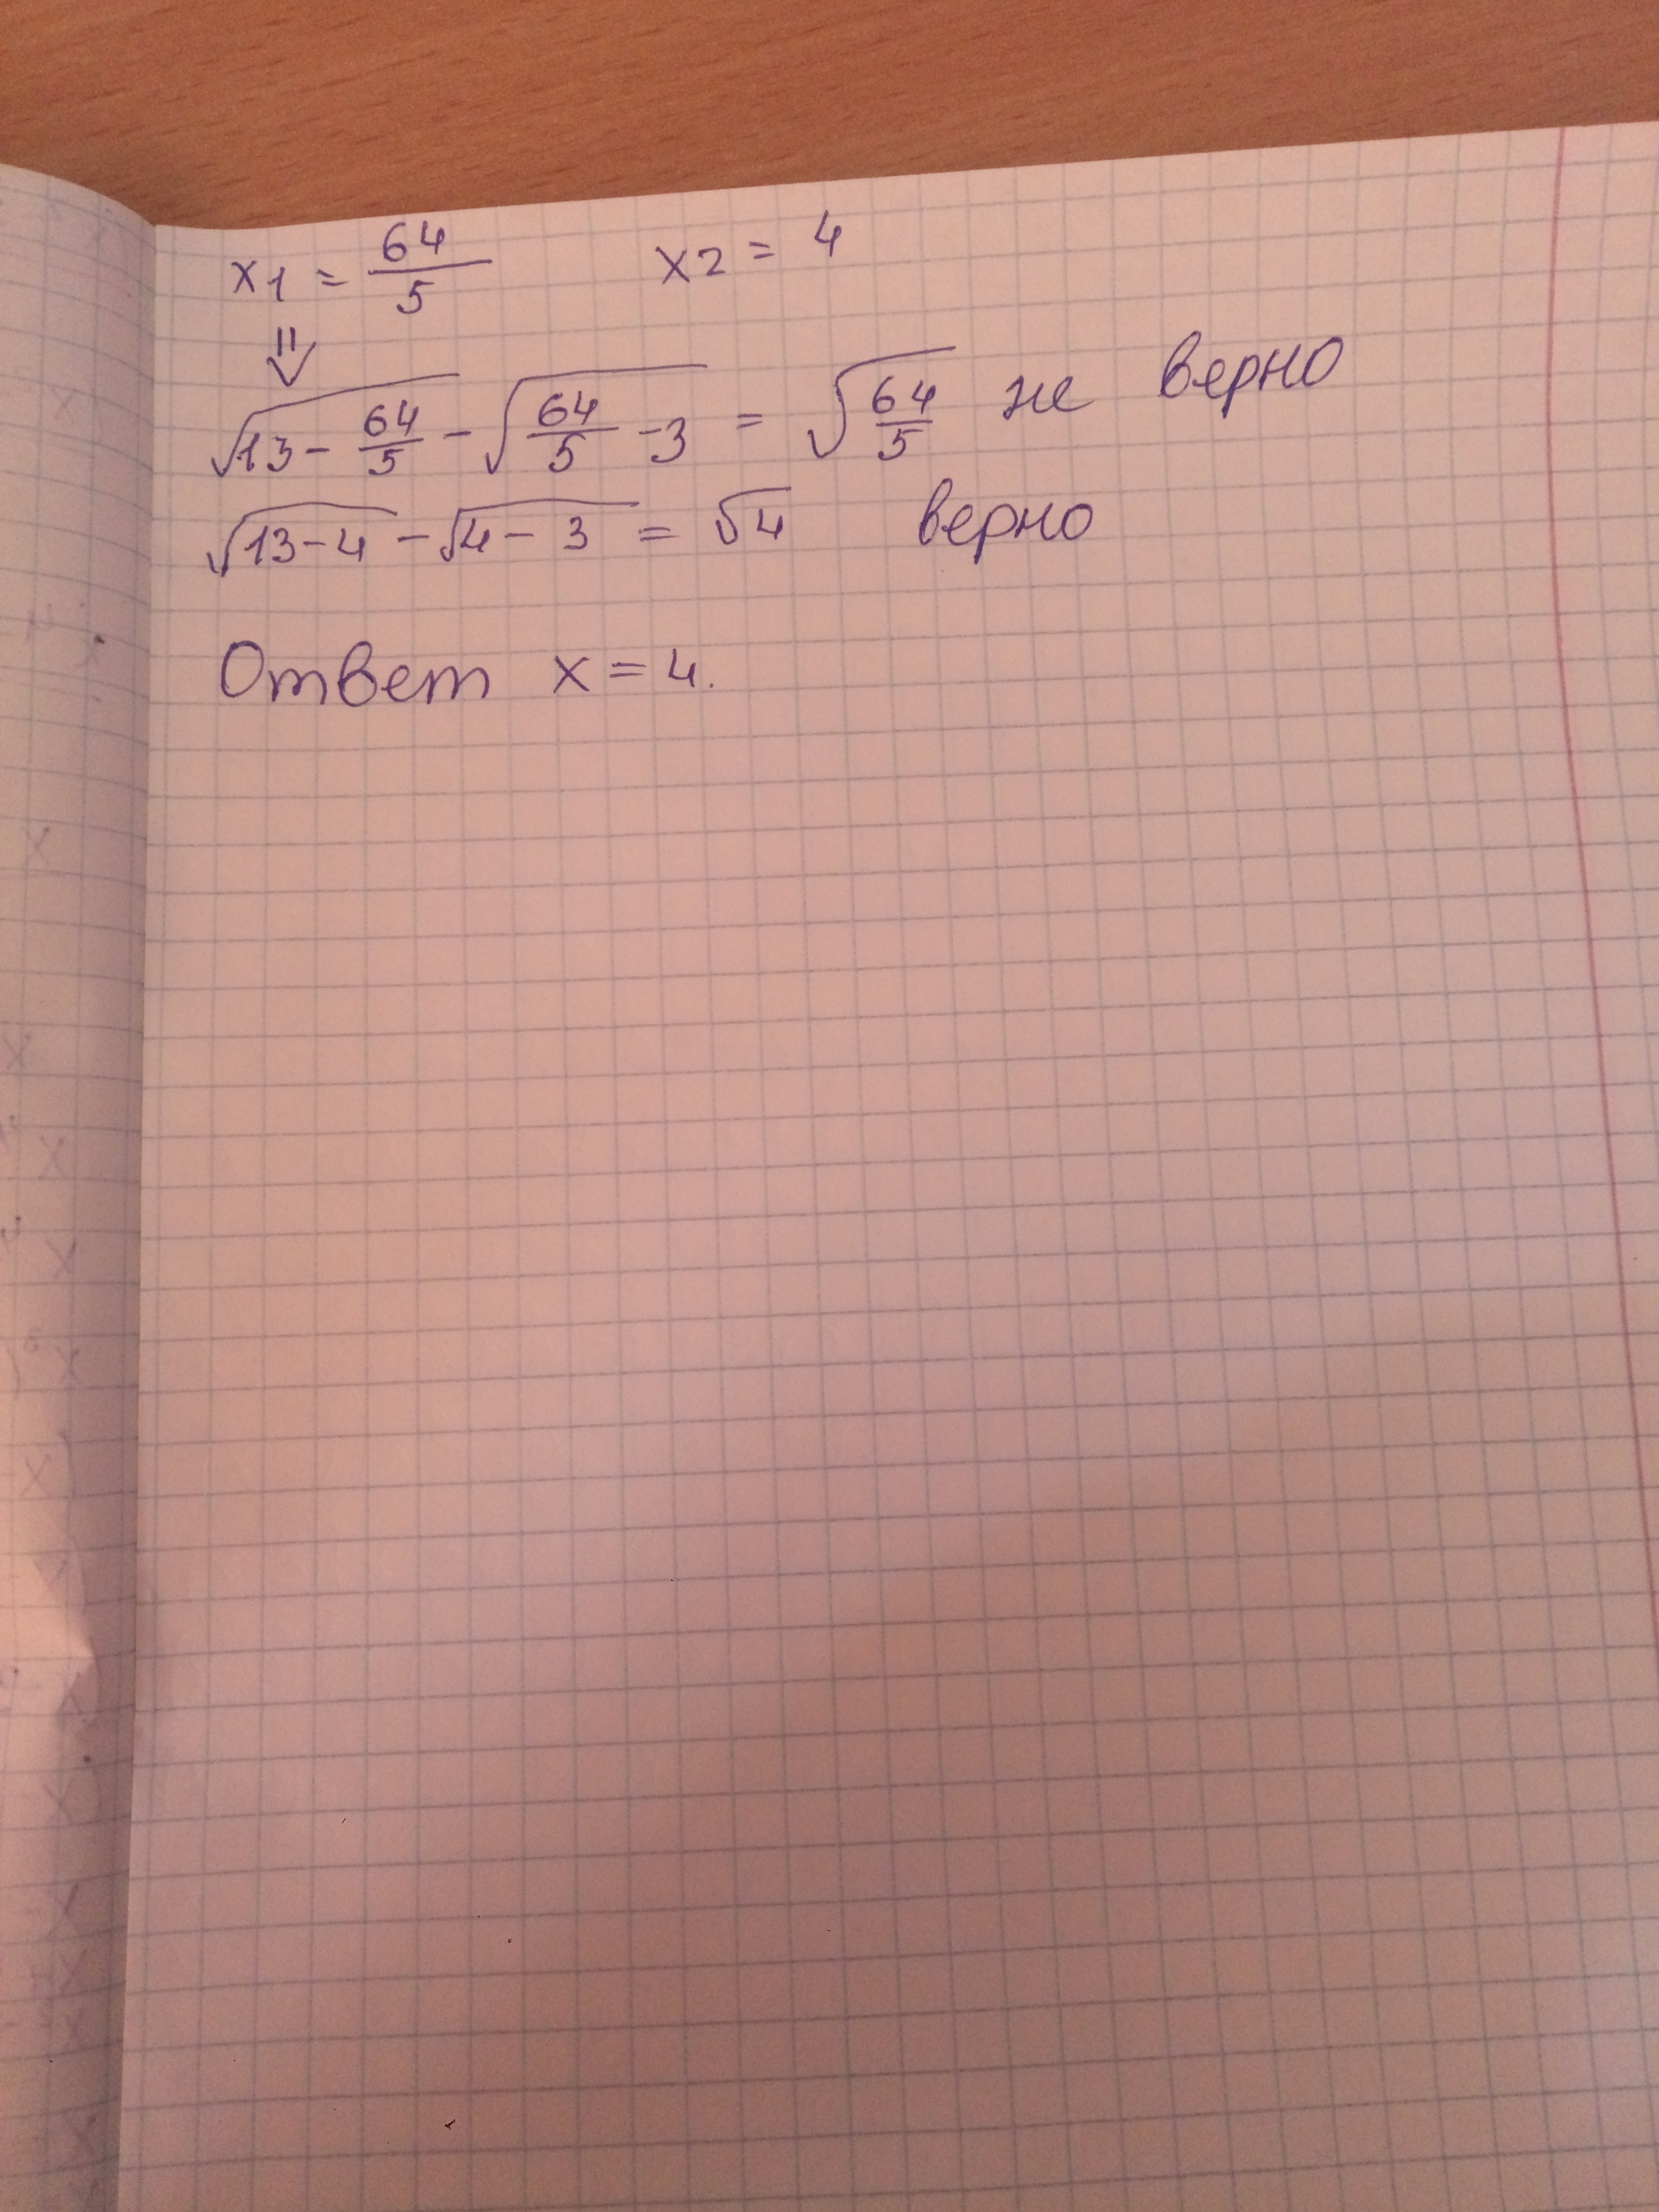 x1 = 64/5 x2 = 4
⇓
√(13 - 64/5) - √(64/5 - 3) = √(64/5) не верно
√(13-4) - √(4-3) = √4 верно
Ответ x = 4.